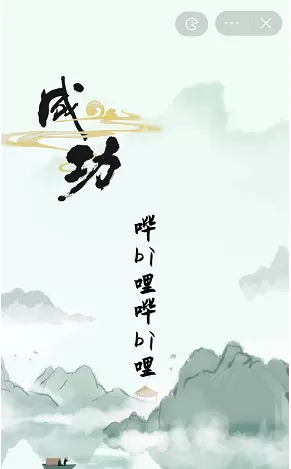 成功
哔bì哩哔bì哩